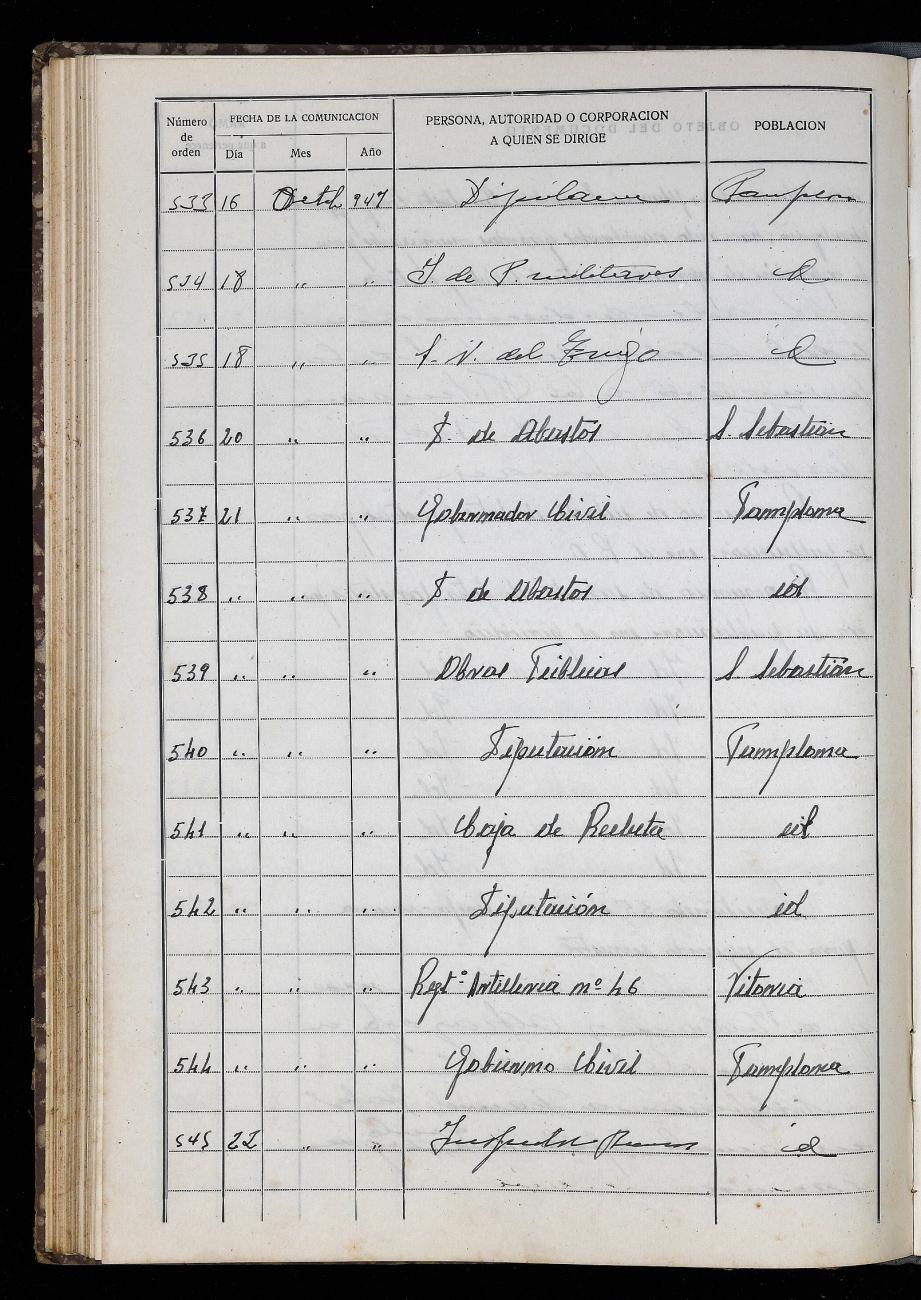 Número de orden FECHA DE LA COMUNICACION PERSONA, AUTORIDAD O CORPORACION A QUIEN SE DIRIGE POBLACION
Día Mes Año
533 16 Octb 947 Diputacion Pamplona
534 18 " " J. de P. militares id
535 18 " " S. N. del Trigo id
536 20 " " D. de Abastos S. Sebastián
537 21 " " Gobernador Civil Pamplona
538 " " " D. de Abastos id
539 " " " Obras Públicas S. Sebastián
540 " " " Diputación Pamplona
541 " " " Caja de Recluta id
542 " " " Diputación id
543 " " " Regtº Artilleria nº 46 Vitoria
544 " " " Gobierno Civil Pamplona
545 22 " " Inspector id